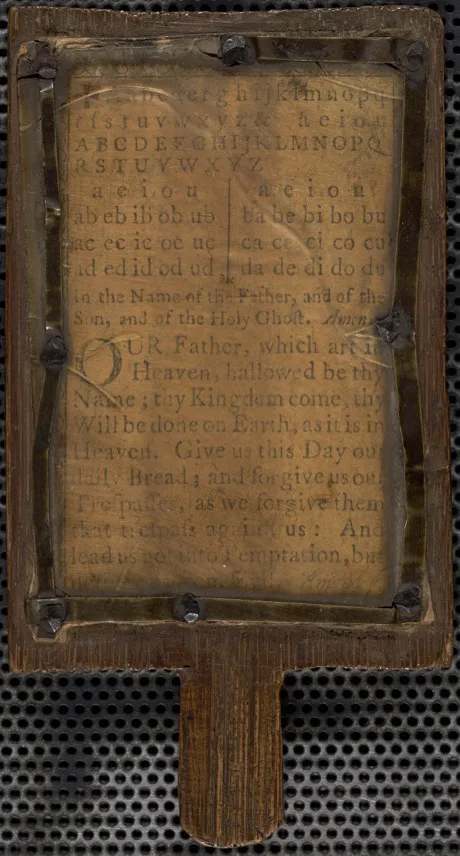 a b c d e f g h i j k l m n o p q
r ſ s t u v w x y z & a e i o u
A B C D E F G H I J K L M N O P Q
R S T U V W X Y Z
a e i o u a e i o u
ab eb ib ob ub ba be bi bo bu
ac ec ic oc uc ca ce ci co cu
ad ed id od ud da de di do du
In the Name of the Father, and of the
Son, and of the Holy Ghoſt. Amen.
OUR Father, which art in
Heaven, hallowed be thy
Name; thy Kingdom come, thy
Will be done on Earth, as it is in
Heaven. Give us this Day our
daily Bread; and forgive us our
Treſpaſſes, as we forgive them
that treſpaſs againſt us: And
lead us not into Temptation, but
Amen.